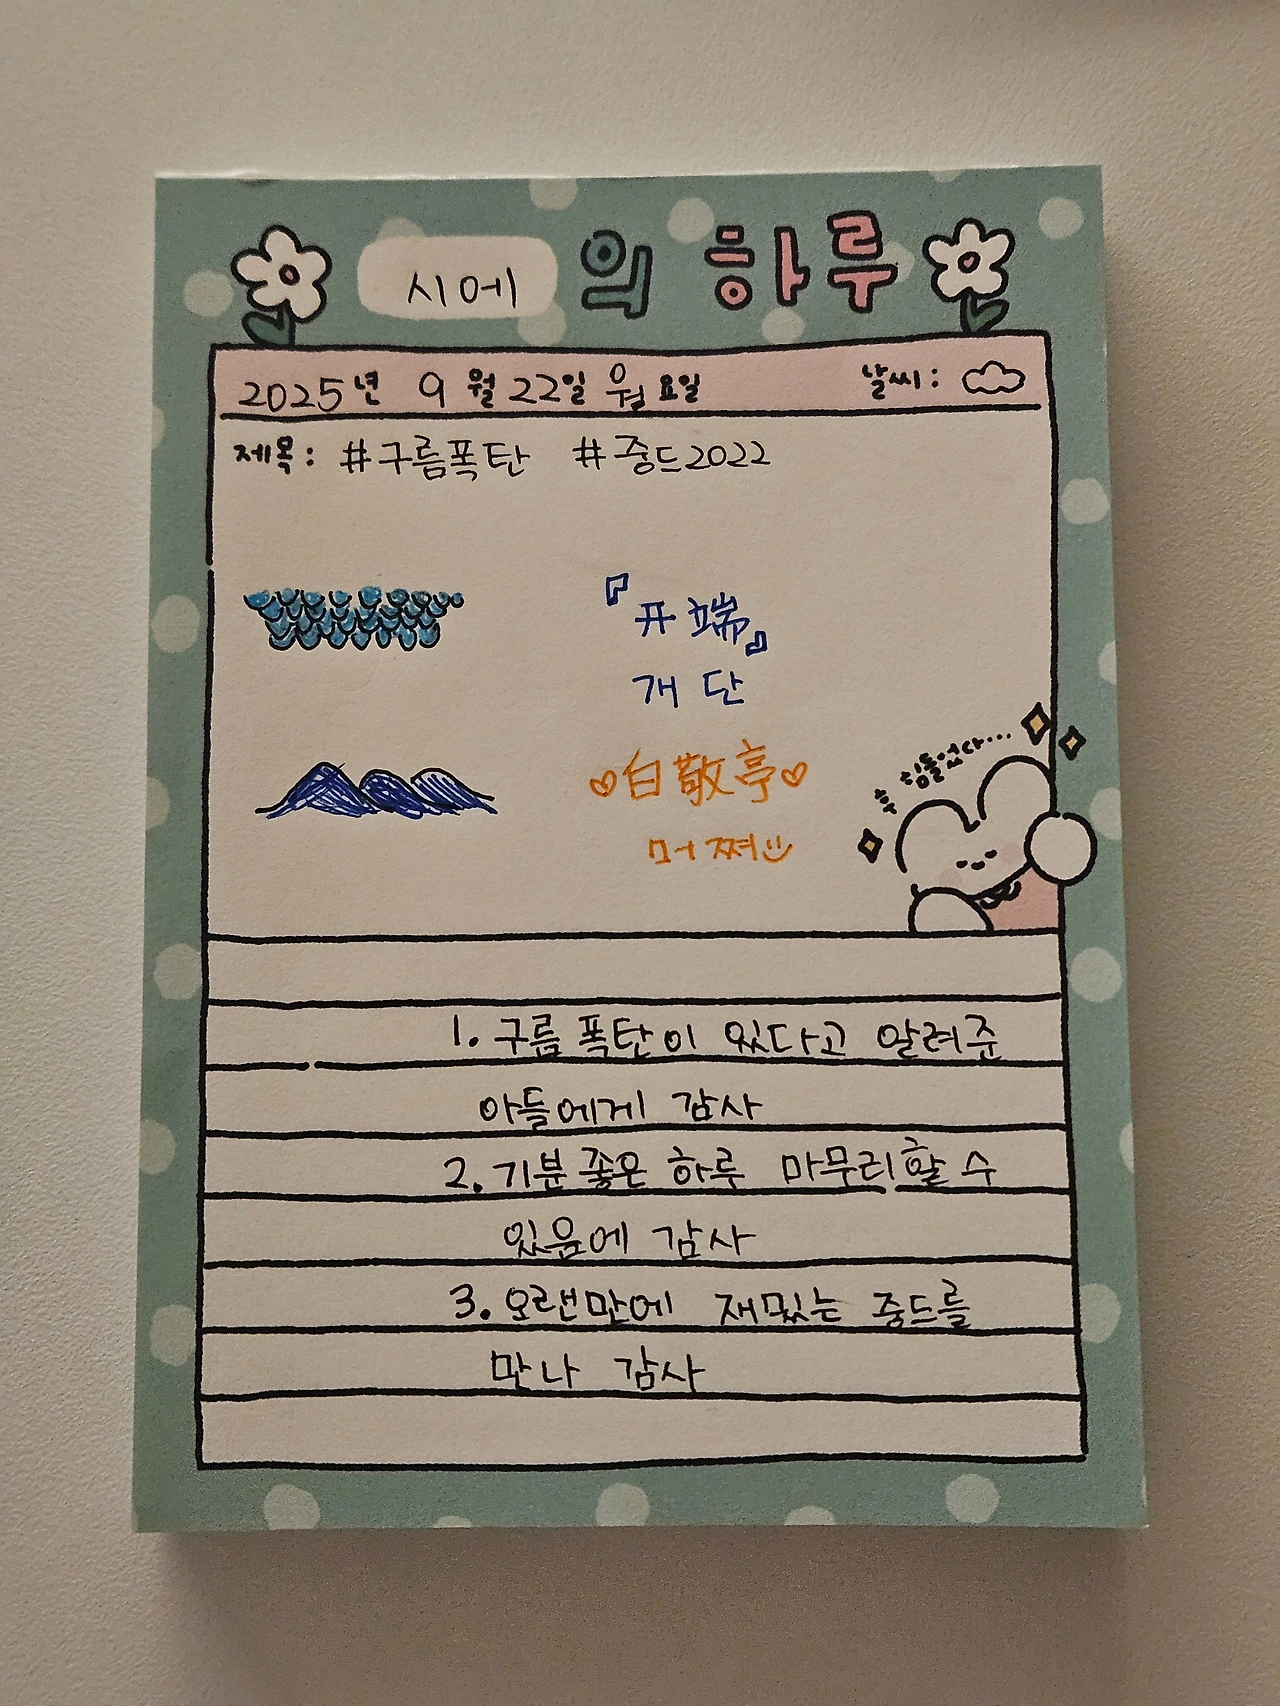 시에의 하루
2025년 9월 22일 월요일 날씨:
제목: #구름폭탄 #중드2022
『开端』
개단
♡白敬亭♡
머쪄
후 힘들었다...
1. 구름폭탄이 있다고 알려준
아들에게 감사
2. 기분좋은 하루 마무리할 수
있음에 감사
3. 오랜만에 재밌는 중드를
만나 감사